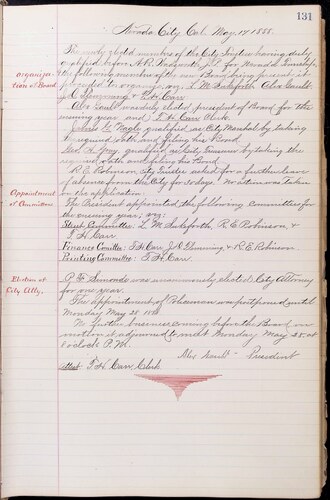 131
Nevada City, Cal. May 17 1888.
The newly elected members of the City Trustees having duly
qualified before A. R. J.P. for Nevada Township
the following members of the new Board being present,
proceeded to organize, viz; L. M. Sukeforth Alex Gault,
J. C. & T. H. Carr.
Organiza-
tion of Board
Alex Gault was duly elected president of Board for the
ensuing year and T. H. Carr Clerk.
John G. Nagle qualified as City Marshal by taking
required oath and filing his Bond.
Geo. H. Gray, qualified as City Treasurer by taking the
required oath and filing his Bond.
R. E. Robinson, City Trustee asked for a further leave
of absence from the City for 30 days. No action was taken
on the application.
Appointment
of Committees
The President appointed the following committees for
the ensuing year, viz:
Street Committee: L. M. Sukeforth, R. E. Robinson, &
T. H. Carr.
Finance Comittee: T. H. Carr, J. C. & R. E. Robinson.
Printing Committee: T. H. Carr.
Election of
City Atty.
P. F. Simonds was unanimously elected City Attorney
for one year.
The appointment of Policeman was postponed until
Monday May 28 1888
No further business coming before the Board, on
motion it adjourned to meet Monday May 28, at
8 o'clock P.M.
Alex Gault President
attest T. H. Carr Clerk.